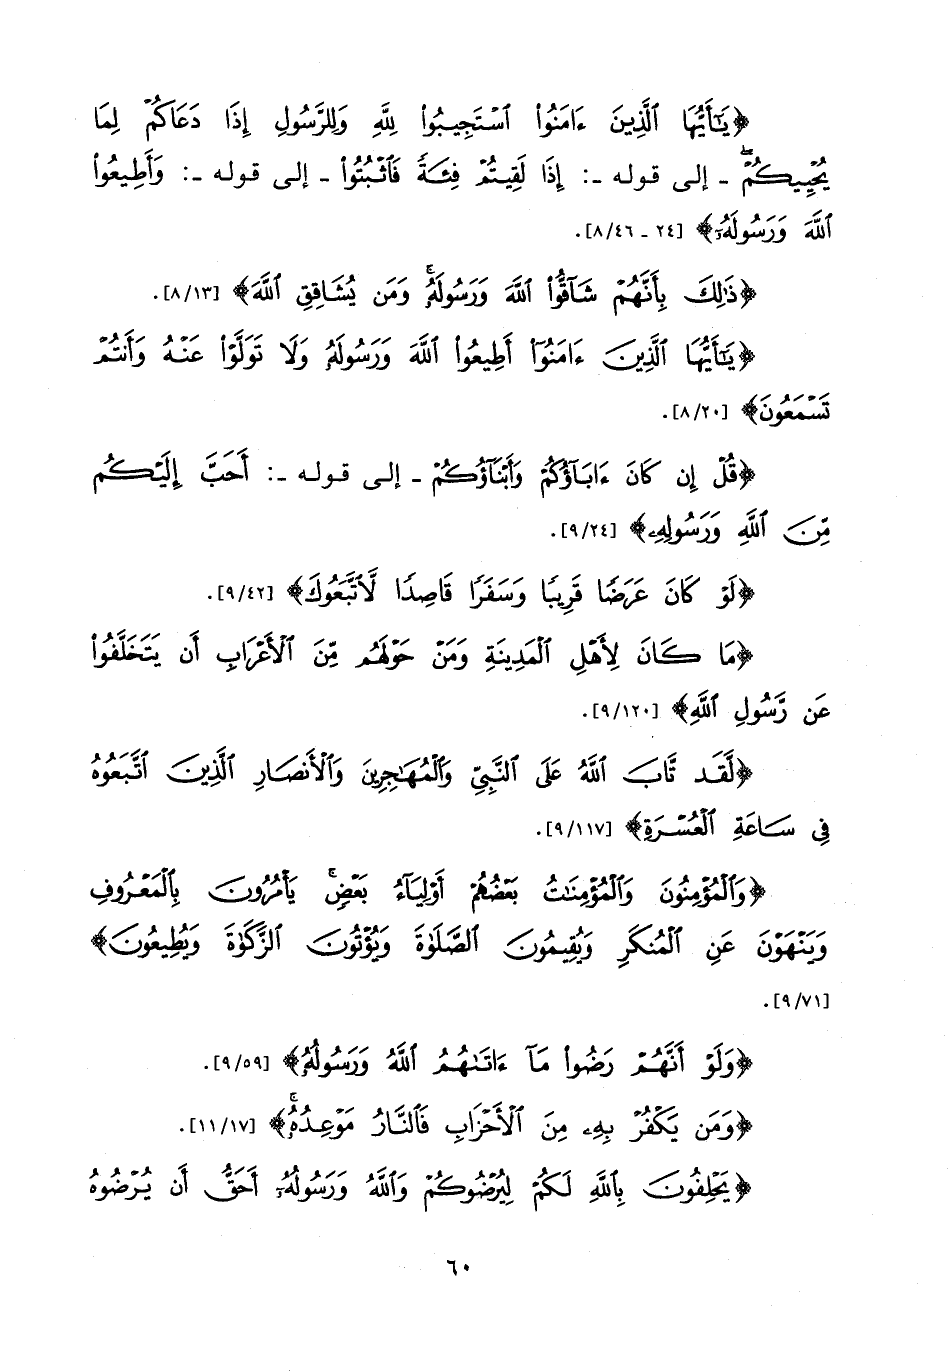 ﴿يَٰٓأَيُّهَا ٱلَّذِينَ ءَامَنُوا۟ ٱسْتَجِيبُوا۟ لِلَّهِ وَلِلرَّسُولِ إِذَا دَعَاكُمْ لِمَا
يُحْيِيكُمْۖ - إلى قوله -: إِذَا لَقِيتُمْ فِئَةً فَٱثْبُتُوا۟ - إلى قوله -: وَأَطِيعُوا۟
ٱللَّهَ وَرَسُولَهُۥ﴾ [٢٤ - ٨/٤٦].
﴿ذَٰلِكَ بِأَنَّهُمْ شَآقُّوا۟ ٱللَّهَ وَرَسُولَهُۥۚ وَمَن يُشَاقِقِ ٱللَّهَ﴾ [٨/١٣].
﴿يَٰٓأَيُّهَا ٱلَّذِينَ ءَامَنُوٓا۟ أَطِيعُوا۟ ٱللَّهَ وَرَسُولَهُۥ وَلَا تَوَلَّوْا۟ عَنْهُ وَأَنتُمْ
تَسْمَعُونَ﴾ [٨/٢٠].
﴿قُلْ إِن كَانَ ءَابَآؤُكُمْ وَأَبْنَآؤُكُمْ - إلى قوله -: أَحَبَّ إِلَيْكُم
مِّنَ ٱللَّهِ وَرَسُولِهِۦ﴾ [٩/٢٤].
﴿لَوْ كَانَ عَرَضًا قَرِيبًا وَسَفَرًا قَاصِدًا لَّٱتَّبَعُوكَ﴾ [٩/٤٢].
﴿مَا كَانَ لِأَهْلِ ٱلْمَدِينَةِ وَمَنْ حَوْلَهُم مِّنَ ٱلْأَعْرَابِ أَن يَتَخَلَّفُوا۟
عَن رَّسُولِ ٱللَّهِ﴾ [٩/١٢٠].
﴿لَّقَد تَّابَ ٱللَّهُ عَلَى ٱلنَّبِيِّ وَٱلْمُهَٰجِرِينَ وَٱلْأَنصَارِ ٱلَّذِينَ ٱتَّبَعُوهُ
فِي سَاعَةِ ٱلْعُسْرَةِ﴾ [٩/١١٧].
﴿وَٱلْمُؤْمِنُونَ وَٱلْمُؤْمِنَٰتُ بَعْضُهُمْ أَوْلِيَآءُ بَعْضٍۚ يَأْمُرُونَ بِٱلْمَعْرُوفِ
وَيَنْهَوْنَ عَنِ ٱلْمُنكَرِ وَيُقِيمُونَ ٱلصَّلَوٰةَ وَيُؤْتُونَ ٱلزَّكَوٰةَ وَيُطِيعُونَ﴾
[٩/٧١].
﴿وَلَوْ أَنَّهُمْ رَضُوا۟ مَآ ءَاتَىٰهُمُ ٱللَّهُ وَرَسُولُهُۥ﴾ [٩/٥٩].
﴿وَمَن يَكْفُرْ بِهِۦ مِنَ ٱلْأَحْزَابِ فَٱلنَّارُ مَوْعِدُهُۥۚ﴾ [١١/١٧].
﴿يَحْلِفُونَ بِٱللَّهِ لَكُمْ لِيُرْضُوكُمْ وَٱللَّهُ وَرَسُولُهُۥٓ أَحَقُّ أَن يُرْضُوهُ
٦٠